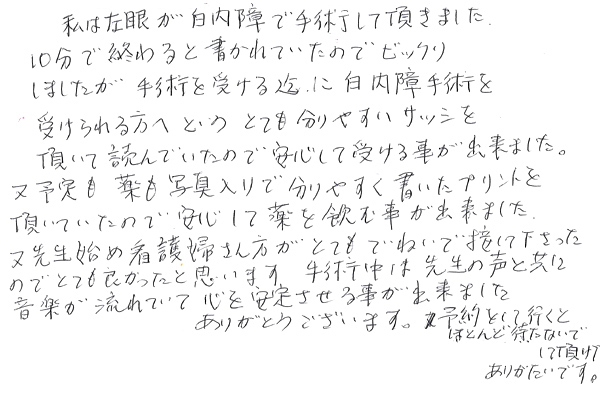 私は左眼が白内障で手術して頂きました.
10分で終わると書かれていたのでビックリ
しましたが 手術を受ける迄に白内障手術を
受けられる方へというとても分りやすいサッシを
頂いて読んでいたので安心して受ける事が出来ました。
又予定も薬も写真入りで分りやすく書いたプリントを
頂いていたので安心して薬を飲む事が出来ました.
又先生始め看護婦さん方がとてもていねいで接して下さった
のでとても良かったと思います 手術中は先生の声と共に
音楽が流れていて心を安定させる事が出来ました
ありがとうございます。又予約をして行くと
ほとんど待たないで
して頂けて
ありがたいです。